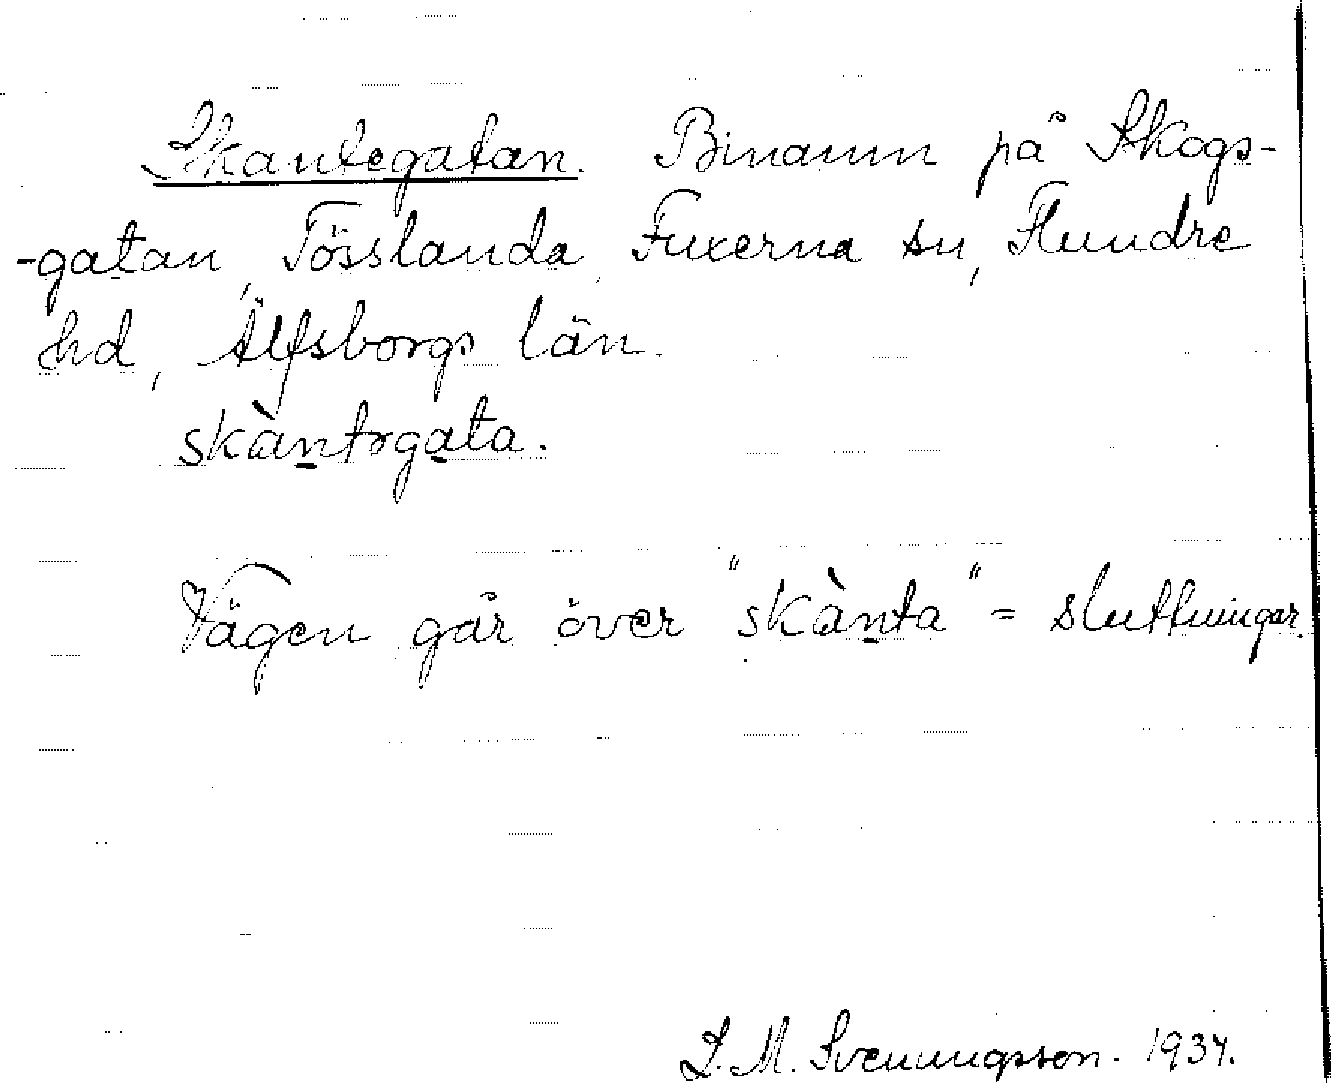 Skantegatan. Binamn på Skogs-
-gatan, Tösslanda, Fuxerna sn, Flundre
hd, Älfsborgs län.
skàntɘgata.
Vägen går över "skànta" = sluttningar.
D. M. Svenningsson. 1934.